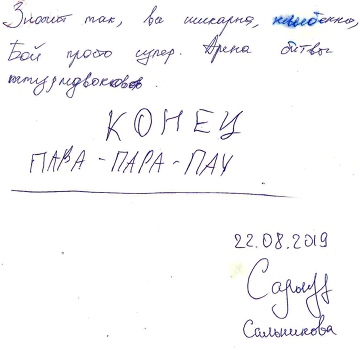 Значит так, вы шикарно,
Бой просто супер. Арена битвы
КОНЕЦ
ПАВА - ПАРА - ПАУ
22.08.2019
Сальникова